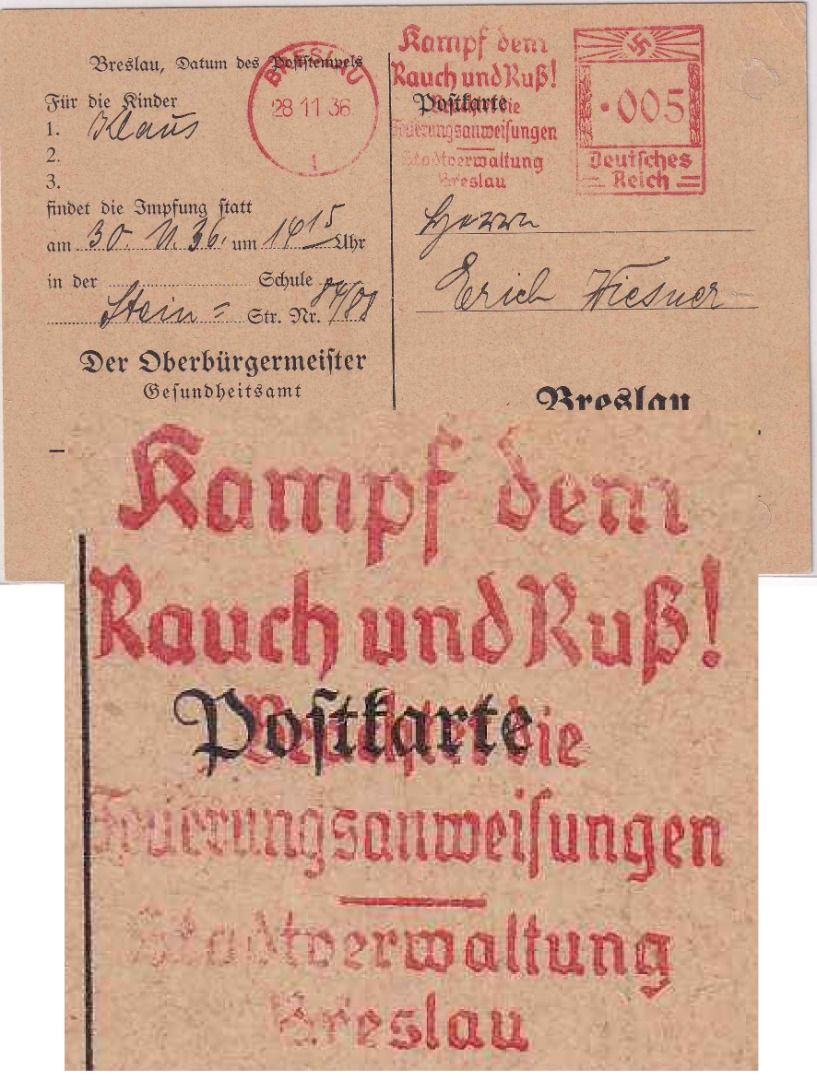 Breslau, Datum des Poststempels
Für die Kinder
1. Klaus
2.
3.
findet die Impfung statt
am 30. 11. 36. um 14 15 Uhr
in der Schule
Stein= Str. Nr.
Der Oberbürgermeister
Gesundheitsamt
BRESLAU
28 11 36
1
Kampf dem
Rauch und Ruß!
Beachtet die
Feuerungsanweisungen
Stadtverwaltung
Breslau
Postkarte
005
Deutsches
Reich
Herrn
Erich Wiesner
Breslau
Kampf dem
Rauch und Ruß!
Beachtet die
Postkarte
Feuerungsanweisungen
Stadtverwaltung
Breslau